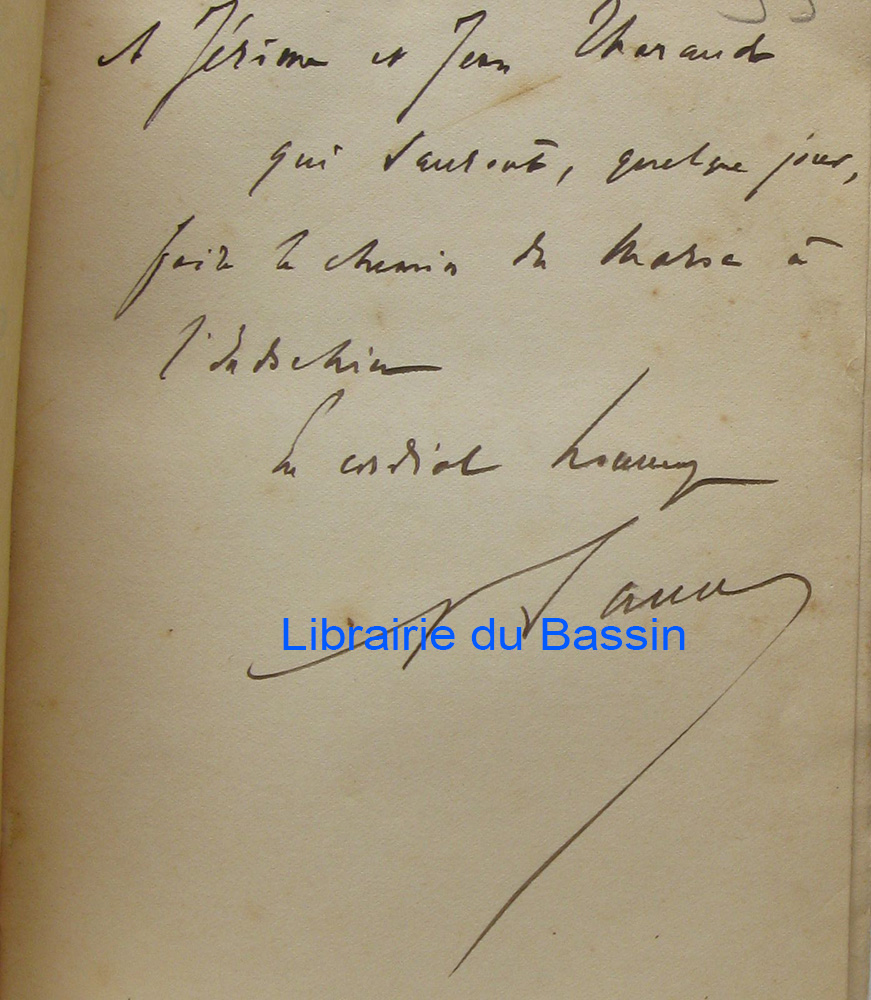 A Jérôme et Jean Tharaud
qui sauront, quelque jour,
faire le chemin du Maroc à
l'Indochine
En cordial hommage
Librairie du Bassin